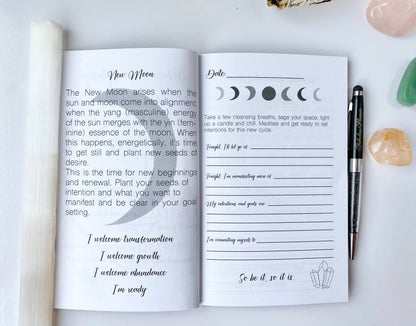 New Moon
The New Moon arises when the
sun and moon come into alignment,
when the yang (masculine) energy
of the sun merges with the yin (fem-
inine) essence of the moon. When
this happens, energetically, it is time
to get still and plant new seeds of
desire.
This is the time for new beginnings
and renewal. Plant your seeds of
intention and what you want to
manifest and be clear in your goal
setting.
I welcome transformation
I welcome growth
I welcome abundance
I'm ready
Date:
Take a few cleansing breaths, sage your space, light
up a candle and chill. Meditate and get ready to set
intentions for this new cycle.
Tonight, I'll let go of
Tonight, I'm manifesting more of
My intentions and goals are
I'm commiting myself to
So be it, so it is.